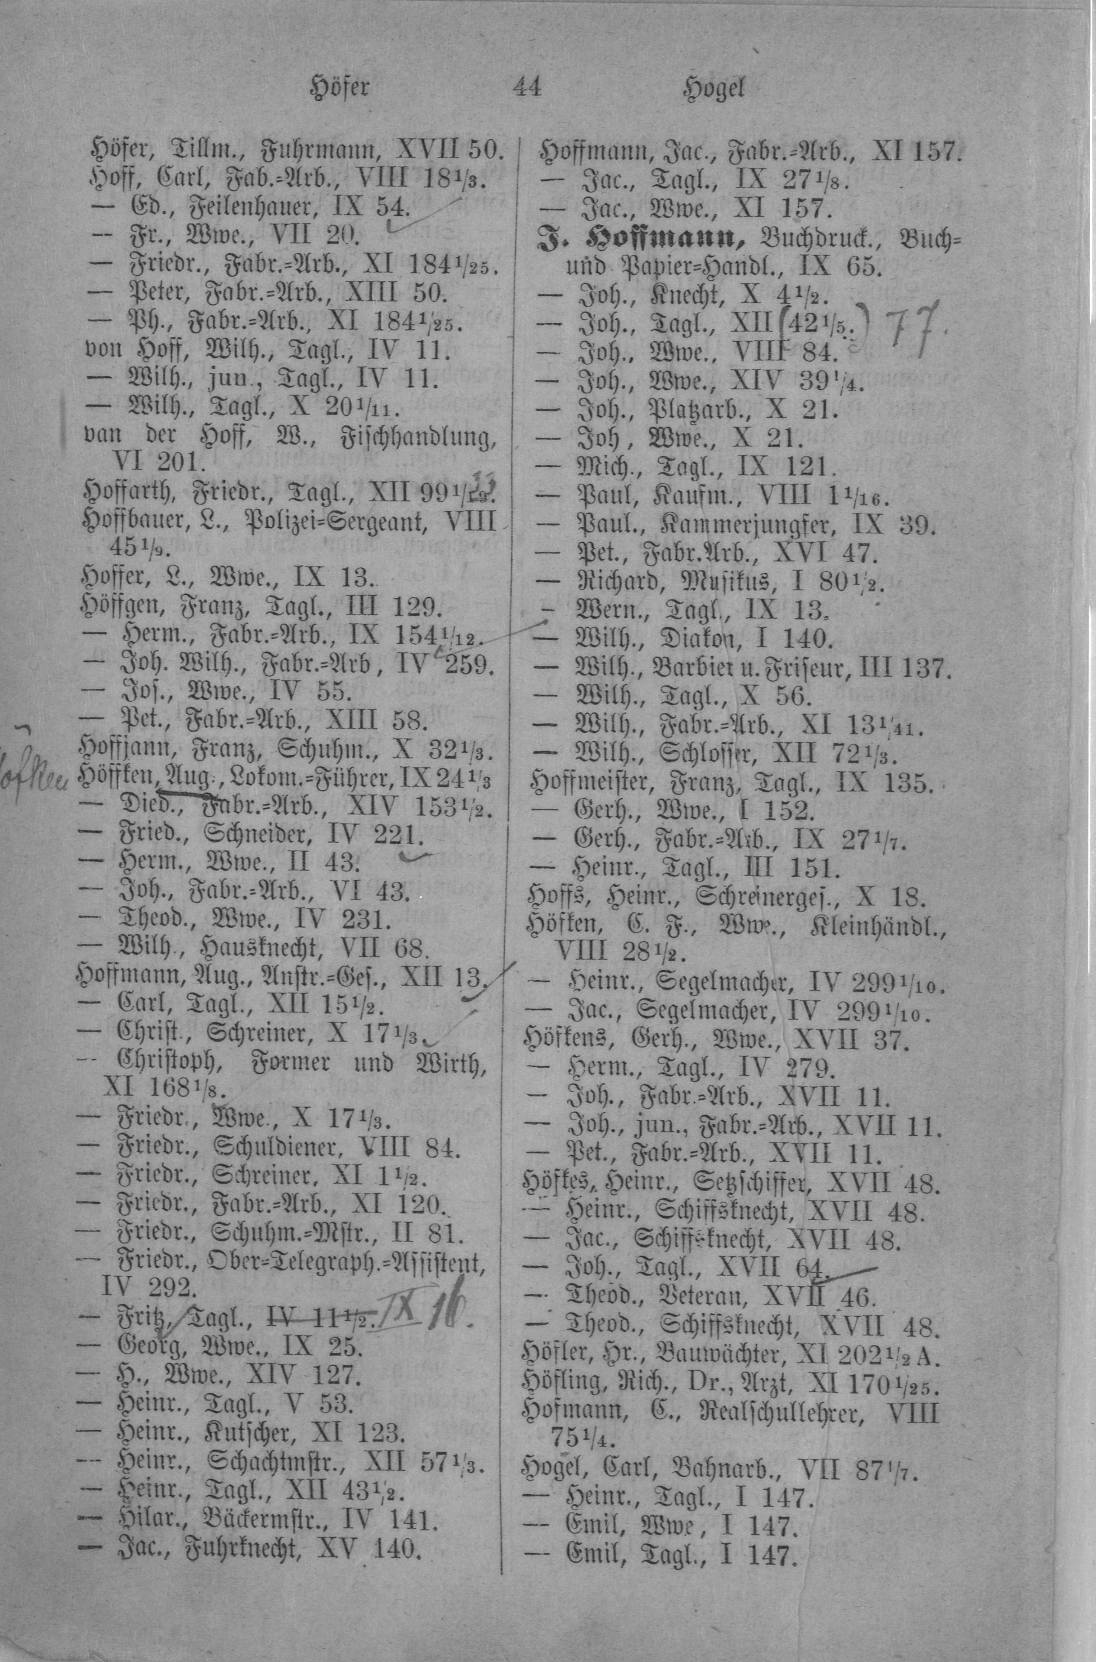 Höfer 44 Hogel
Höfer, Tillm., Fuhrmann, XVII 50.
Hoff, Carl, Fab.=Arb., VIII 18 1/3.
— Ed., Feilenhauer, IX 54.
— Fr., Wwe., VII 20.
— Friedr., Fabr.=Arb., XI 184 1/25.
— Peter, Fabr.=Arb., XIII 50.
— Ph., Fabr.=Arb., XI 184 1/25.
von Hoff, Wilh., Tagl., IV 11.
— Wilh., jun., Tagl., IV 11.
— Wilh., Tagl., X 20 1/11.
van der Hoff, W., Fischhandlung,
VI 201.
Hoffarth, Friedr., Tagl., XII 99
Hoffbauer, L., Polizei=Sergeant, VIII
45 1/2.
Hoffer, L., Wwe., IX 13.
Höffgen, Franz, Tagl., III 129.
— Herm., Fabr.=Arb., IX 154 1/12.
— Joh. Wilh., Fabr.=Arb, IV 259.
— Jos., Wwe., IV 55.
— Pet., Fabr.=Arb., XIII 58.
Hoffjann, Franz, Schuhm., X 32 1/3.
Höffken, Aug., Lokom.=Führer, IX 24 1/3
— Died., Fabr.=Arb., XIV 153 1/2.
— Fried., Schneider, IV 221.
— Herm., Wwe., II 43.
— Joh., Fabr.=Arb., VI 43.
— Theod., Wwe., IV 231.
— Wilh., Hausknecht, VII 68.
Hoffmann, Aug., Anstr.=Ges., XII 13.
— Carl, Tagl., XII 15 1/2.
— Christ., Schreiner, X 17 1/3.
— Christoph, Former und Wirth,
XI 168 1/8.
— Friedr., Wwe., X 17 1/3.
— Friedr., Schuldiener, VIII 84.
— Friedr., Schreiner, XI 1 1/2.
— Friedr., Fabr.=Arb., XI 120.
— Friedr., Schuhm.=Mstr., II 81.
— Friedr., Ober=Telegraph.=Assistent,
IV 292.
— Fritz, Tagl., IV 11 1/2. IX 16.
— Georg, Wwe., IX 25.
— H., Wwe., XIV 127.
— Heinr., Tagl., V 53.
— Heinr., Kutscher, XI 123.
— Heinr., Schachtmstr., XII 57 1/3.
— Heinr., Tagl., XII 43 1/2.
— Hilar., Bäckermstr., IV 141.
— Jac., Fuhrknecht, XV 140.
Hoffmann, Jac., Fabr.=Arb., XI 157.
— Jac., Tagl., IX 27 1/8.
— Jac., Wwe., XI 157.
J. Hoffmann, Buchdruck., Buch=
und Papier=Handl., IX 65.
— Joh., Knecht, X 4 1/2.
— Joh., Tagl., XII (42 1/5.) 77.
— Joh., Wwe., VIII 84.
— Joh., Wwe., XIV 39 1/4.
— Joh., Platzarb., X 21.
— Joh, Wwe., X 21.
— Mich., Tagl., IX 121.
— Paul, Kaufm., VIII 1 1/16.
— Paul., Kammerjungfer, IX 39.
— Pet., Fabr.Arb., XVI 47.
— Richard, Musikus, I 80 1/2.
— Wern., Tagl., IX 13.
— Wilh., Diakon, I 140.
— Wilh., Barbier u. Friseur, III 137.
— Wilh., Tagl., X 56.
— Wilh., Fabr.=Arb., XI 13 1/41.
— Wilh., Schlosser, XII 72 1/3.
Hoffmeister, Franz, Tagl., IX 135.
— Gerh., Wwe., I 152.
— Gerh., Fabr.=Arb., IX 27 1/7.
— Heinr., Tagl., III 151.
Hoffs, Heinr., Schreinerges., X 18.
Höfken, C. F., Wwe., Kleinhändl.,
VIII 28 1/2.
— Heinr., Segelmacher, IV 299 1/10.
— Jac., Segelmacher, IV 299 1/10.
Höfkens, Gerh., Wwe., XVII 37.
— Herm., Tagl., IV 279.
— Joh., Fabr.=Arb., XVII 11.
— Joh., jun., Fabr.=Arb., XVII 11.
— Pet., Fabr.=Arb., XVII 11.
Höfkes, Heinr., Setzschiffer, XVII 48.
— Heinr., Schiffsknecht, XVII 48.
— Jac., Schiffsknecht, XVII 48.
— Joh., Tagl., XVII 64.
— Theod., Veteran, XVII 46.
— Theod., Schiffsknecht, XVII 48.
Höfler, Hr., Bauwächter, XI 202 1/2 A.
Höfling, Rich., Dr., Arzt, XI 170 1/25.
Hofmann, C., Realschullehrer, VIII
75 1/4.
Hogel, Carl, Bahnarb., VII 87 1/7.
— Heinr., Tagl., I 147.
— Emil, Wwe, I 147.
— Emil, Tagl., I 147.